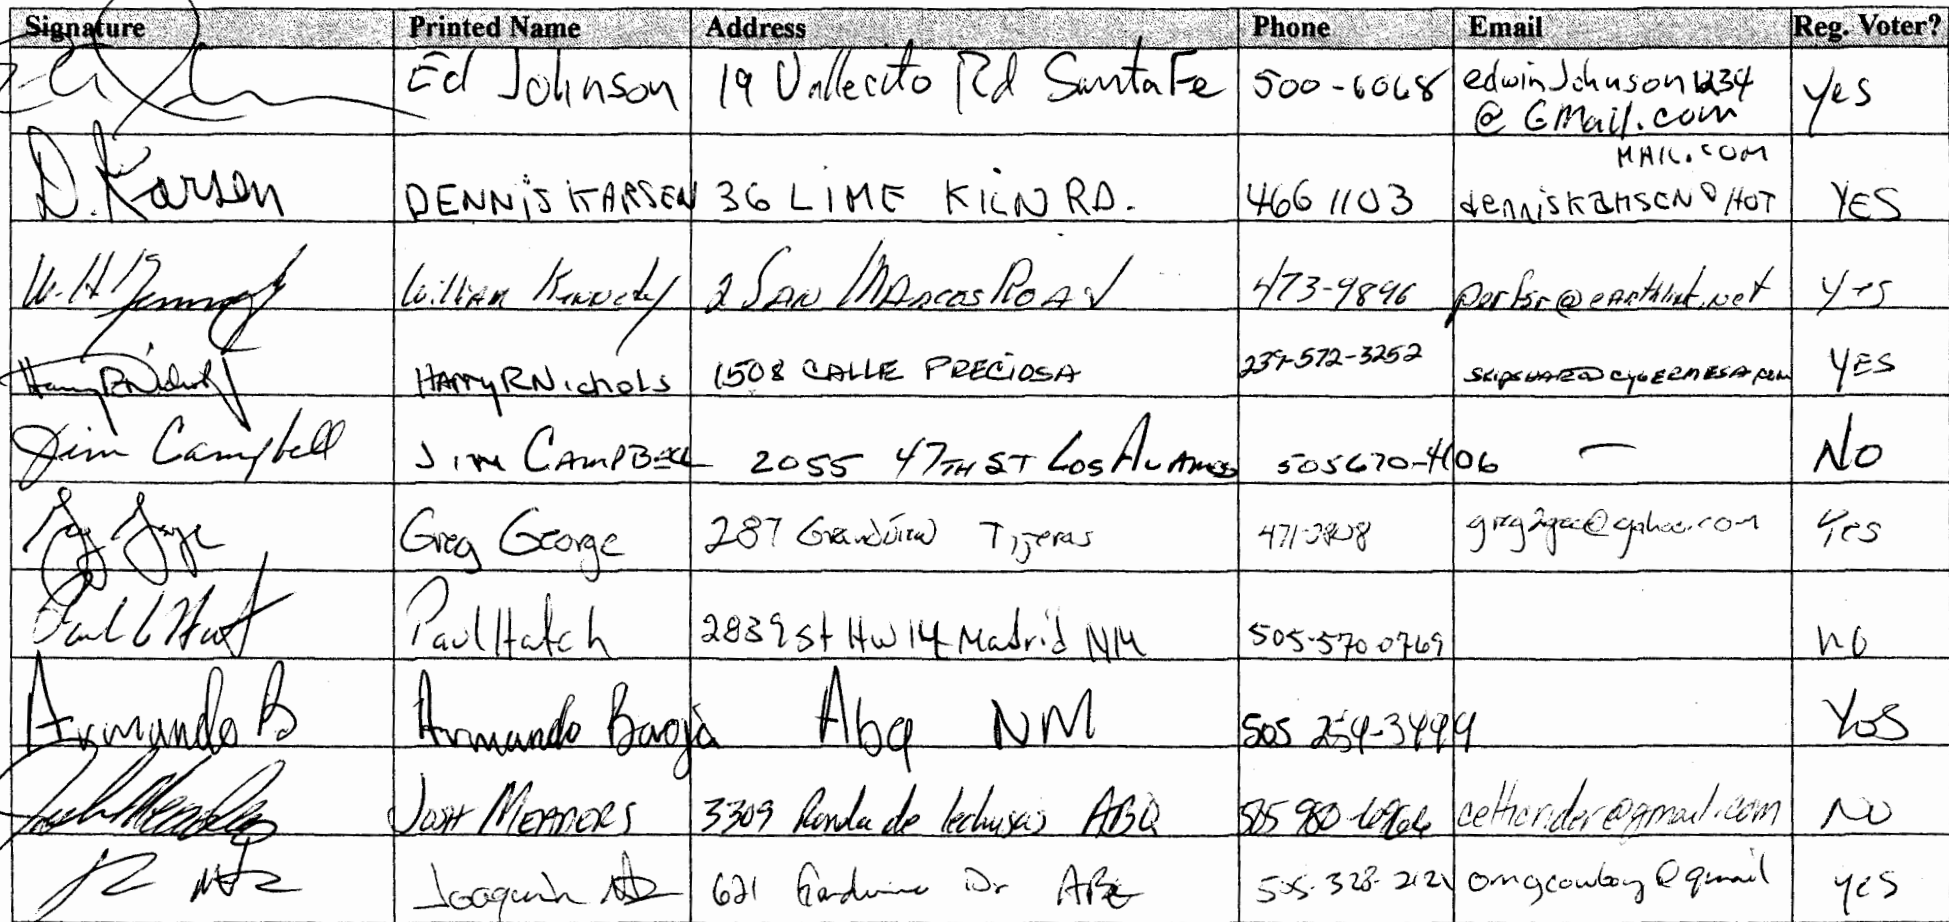 Signature Printed Name Address Phone Email Reg. Voter?
Ed Johnson 19 Vallecito Rd Santa Fe 500-6068 edwinJohnson1234 yes
@ GMail.com
MAIL.COM
D. Karsen DENNIS KARSEN 36 LIME KILN RD. 466 1103 dennisKARSEN@HOT YES
William Kennedy 2 SAN MARCOS ROAD 473-9896 perfsr@earthlink.net Yes
Harry R Nichols HARRY R Nichols 1508 CALLE PRECIOSA 239-572-3252 YES
Jim Campbell JIM CAMPBELL 2055 47TH ST LOS ALAMOS 505670-4106 — No
Greg George 287 Grandview Tijeras Yes
Paul Hatch 2839 St HW 14 Madrid NM 505-570-0769 no
Armando B Armando Baoja Abq NM 505 259-3499 Yos
JOSH MEADORS 3309 Ronda de lechusas ABQ NO
Joaquin 621 Dr ABQ 505-328-2121 omgcowboy@gmail yes